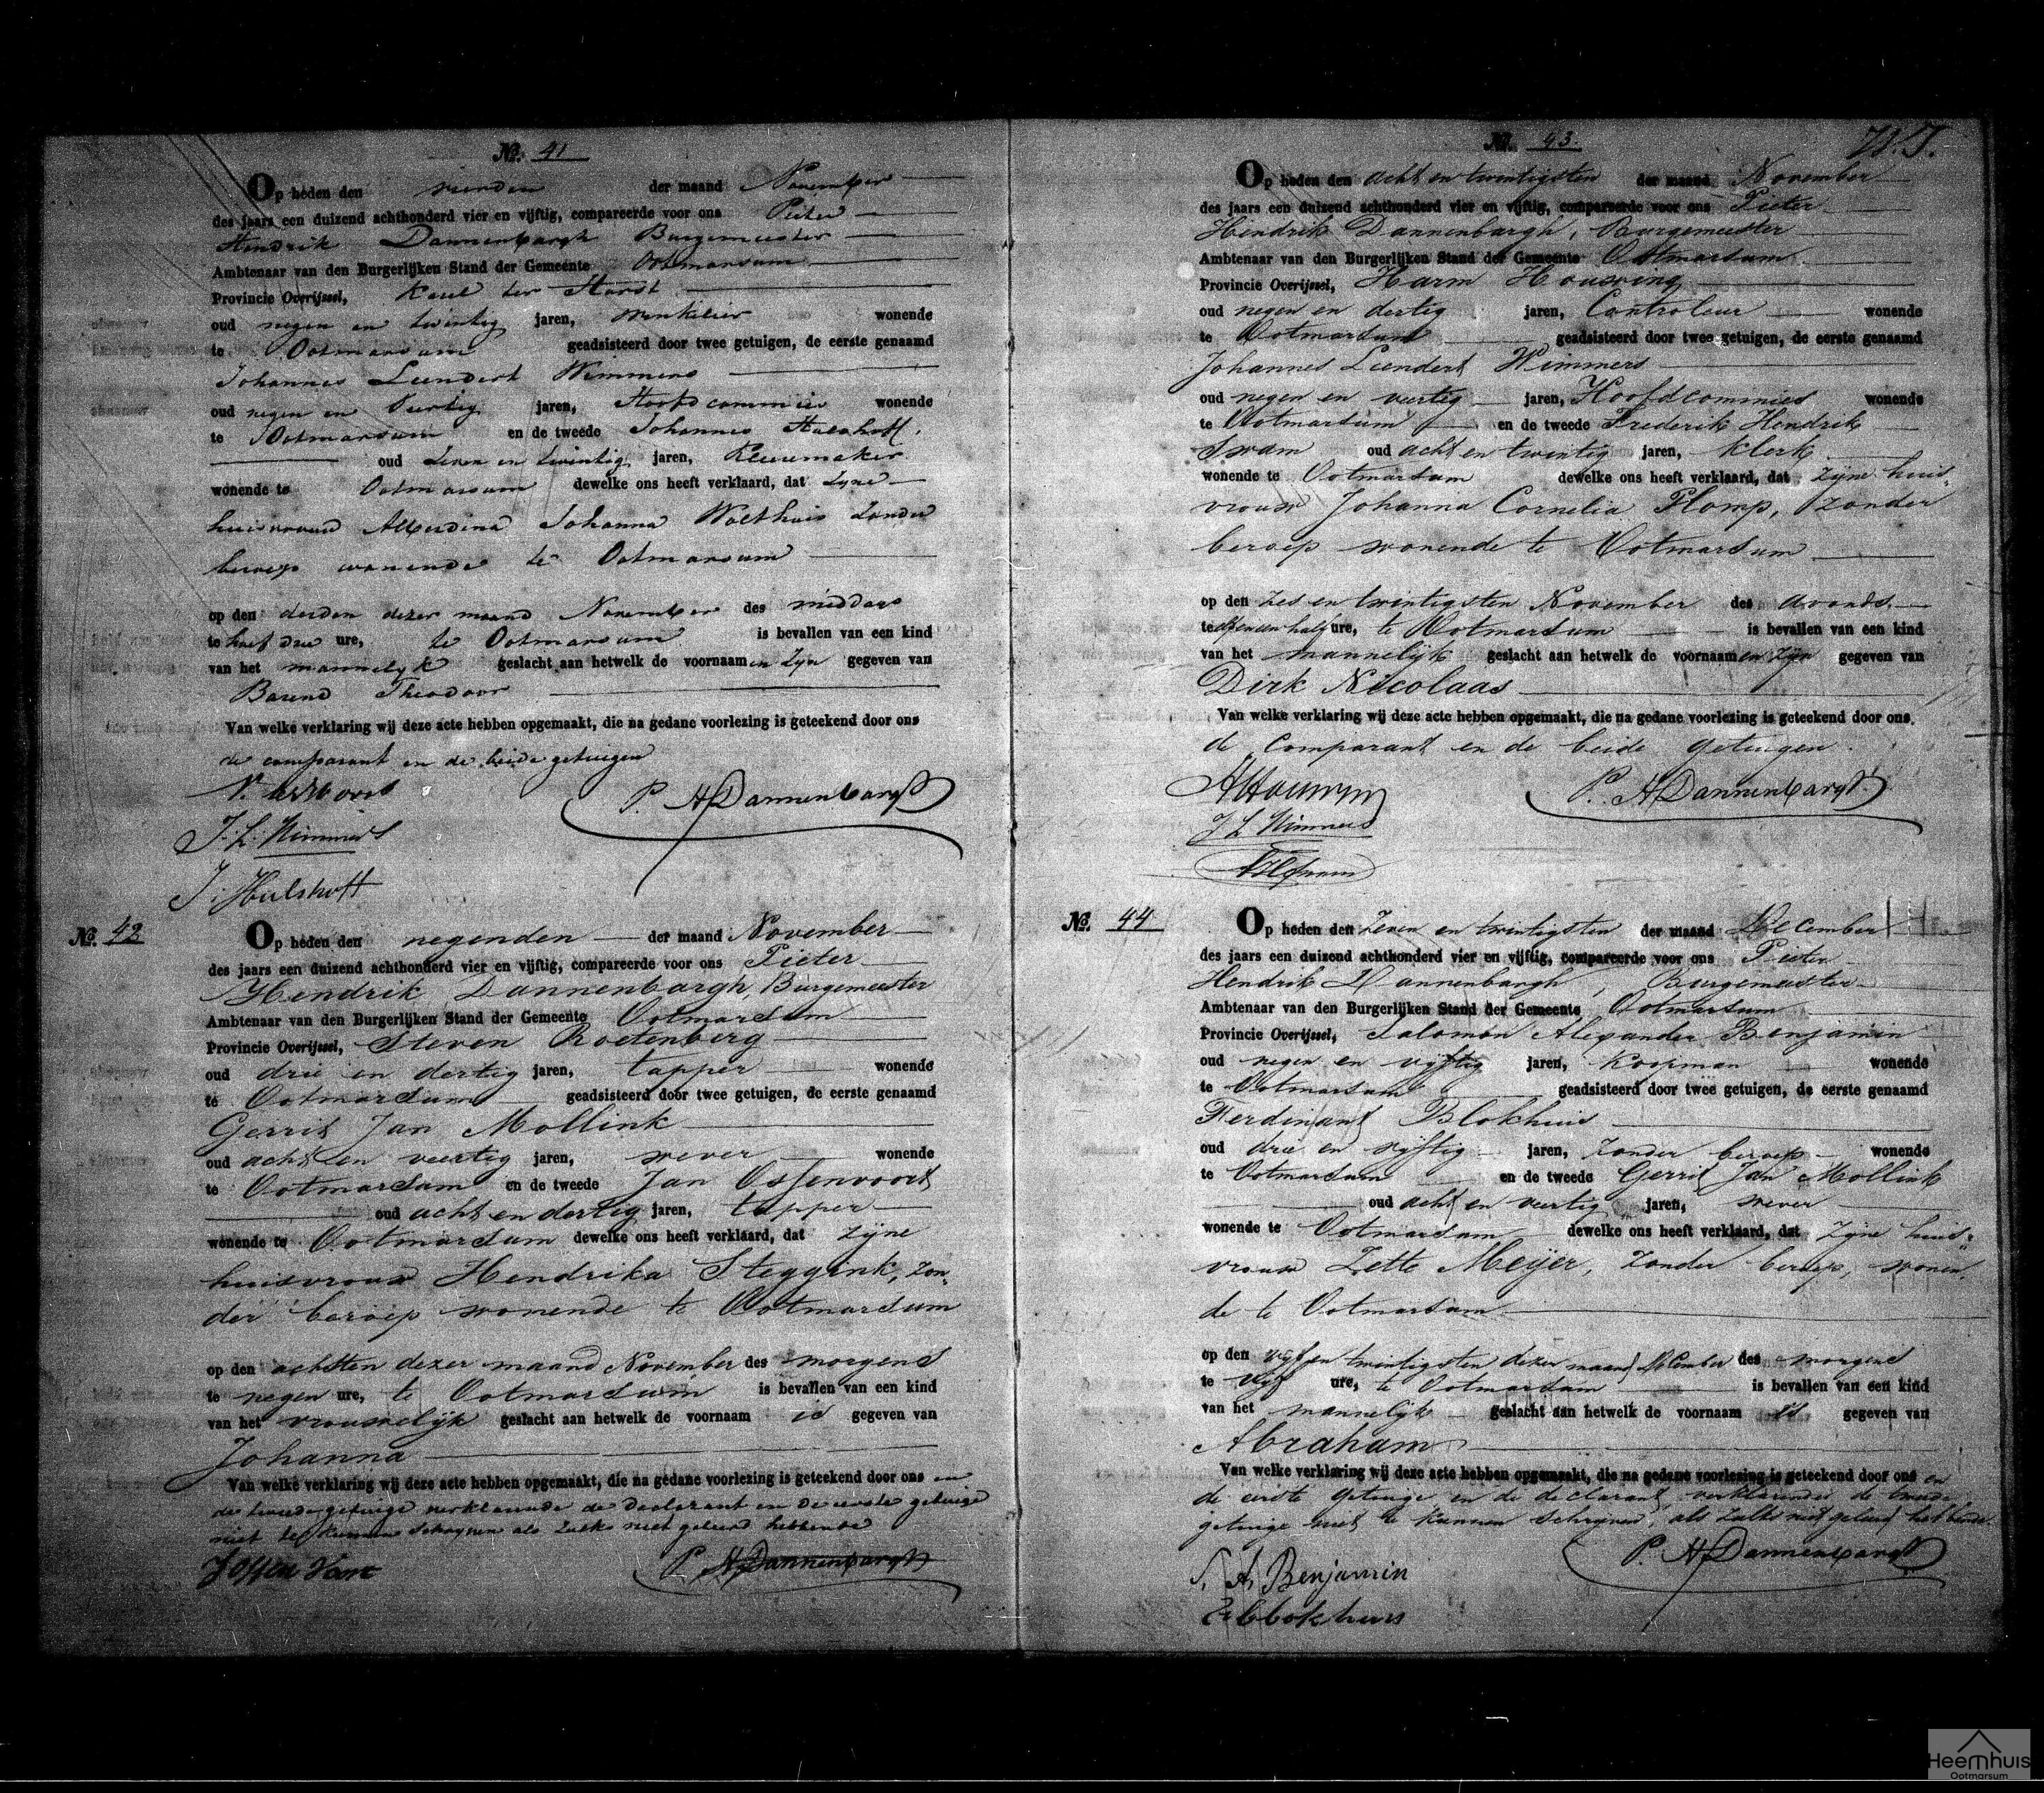 No. 41
Op heden den vierden der maand November
des jaars een duizend achthonderd vier en vijftig, compareerde voor ons Pieter
Hendrik Dannenbargh Burgemeester
Ambtenaar van den Burgerlijken Stand der Gemeente Ootmarsum
Provincie Overijssel, Karel ter Horst
oud negen en twintig jaren, winkelier wonende
te Ootmarsum geadsisteerd door twee getuigen, de eerste genaamd
Johannes Leendert Wimmers
oud negen en veertig jaren, Hoofdcommies wonende
te Ootmarsum en de tweede Johannes Hulshoff
oud zeven en twintig jaren, wonende te Ootmarsum dewelke ons heeft verklaard, dat zyne
huisvrouw Alberdina Johanna Wolthuis zonder
beroep wonende te Ootmarsum
op den derden dezer maand November des middags
te half drie ure, te Ootmarsum is bevallen van een kind
van het mannelyk geslacht aan hetwelk de voornaamen zyn gegeven van
Barend Theodoor
Van welke verklaring wij deze acte hebben opgemaakt, die na gedane voorlezing is geteekend door ons
de comparant en de beide getuigen
P. H Dannenbargh
J. L. Wimmers
J. Hulshoff
No. 42
Op heden den negenden der maand November
des jaars een duizend achthonderd vier en vijftig, compareerde voor ons Pieter
Hendrik Dannenbargh, Burgemeester
Ambtenaar van den Burgerlijken Stand der Gemeente Ootmarsum
Provincie Overijssel, Steven Roetenberg
oud drie en dertig jaren, tapper wonende
te Ootmarsum geadsisteerd door twee getuigen, de eerste genaamd
Gerrit Jan Mollink
oud acht en veertig jaren, wever wonende
te Ootmarsum en de tweede Jan Ossenvoort
oud acht en dertig jaren, tapper
wonende te Ootmarsum dewelke ons heeft verklaard, dat zijne
huisvrouw Hendrika Steggink, zon-
der beroep wonende te Ootmarsum
op den achtsten dezer maand November des morgens
te negen ure, te Ootmarsum is bevallen van een kind
van het vrouwelijk geslacht aan hetwelk de voornaam is gegeven van
Johanna
Van welke verklaring wij deze acte hebben opgemaakt, die na gedane voorlezing is geteekend door ons en
de tweede getuige verklarende de declarant en de eerste getuige
niet te kunnen schryven als zulks niet geleerd hebbende
P. H Dannenbargh
No. 43
Op heden den acht en twintigsten der maand November
des jaars een duizend achthonderd vier en vijftig, compareerde voor ons Pieter
Hendrik Dannenbargh, Burgemeester
Ambtenaar van den Burgerlijken Stand der Gemeente Ootmarsum
Provincie Overijssel, Harm Houwing
oud negen en dertig jaren, Controleur wonende
te Ootmarsum geadsisteerd door twee getuigen, de eerste genaamd
Johannes Leendert Wimmers
oud negen en veertig jaren, Hoofdcommies wonende
te Ootmarsum en de tweede Frederik Hendrik
Swam oud acht en twintig jaren, klerk
wonende te Ootmarsum dewelke ons heeft verklaard, dat zijne huis-
vrouw Johanna Cornelia Plomp, zonder
beroep wonende te Ootmarsum
op den zes en twintigsten November des avonds
te half ure, te Ootmarsum is bevallen van een kind
van het mannelijk geslacht aan hetwelk de voornaamen zijn gegeven van
Dirk Nicolaas
Van welke verklaring wij deze acte hebben opgemaakt, die na gedane voorlezing is geteekend door ons,
de Comparant en de beide getuigen
P. H Dannenbargh
J L Wimmers
No. 44
Op heden den zeven en twintigsten der maand December
des jaars een duizend achthonderd vier en vijftig, compareerde voor ons Pieter
Hendrik Dannenbargh, Burgemeester
Ambtenaar van den Burgerlijken Stand der Gemeente Ootmarsum
Provincie Overijssel, Salomon Alexander Benjamin
oud negen en vijftig jaren, Koopman wonende
te Ootmarsum geadsisteerd door twee getuigen, de eerste genaamd
Ferdinant Blokhuis
oud drie en vijftig jaren, zonder beroep wonende
te Ootmarsum en de tweede Gerrit Jan Mollink
oud acht en veertig jaren, wever
wonende te Ootmarsum dewelke ons heeft verklaard, dat zijne huis-
vrouw Zette Meijer, zonder beroep, wonen-
de te Ootmarsum
op den vijf en twintigsten dezer maand December des morgens
te vijf ure, te Ootmarsum is bevallen van een kind
van het mannelijk geslacht aan hetwelk de voornaam is gegeven van
Abraham
Van welke verklaring wij deze acte hebben opgemaakt, die na gedane voorlezing is geteekend door ons en
de eerste getuige en de declarant, verklarende de tweede
getuige niet te kunnen schrijven, als zulks niet geleerd hebbende.
P. H Dannenbargh
S. A. Benjamin
Heemhuis
Ootmarsum